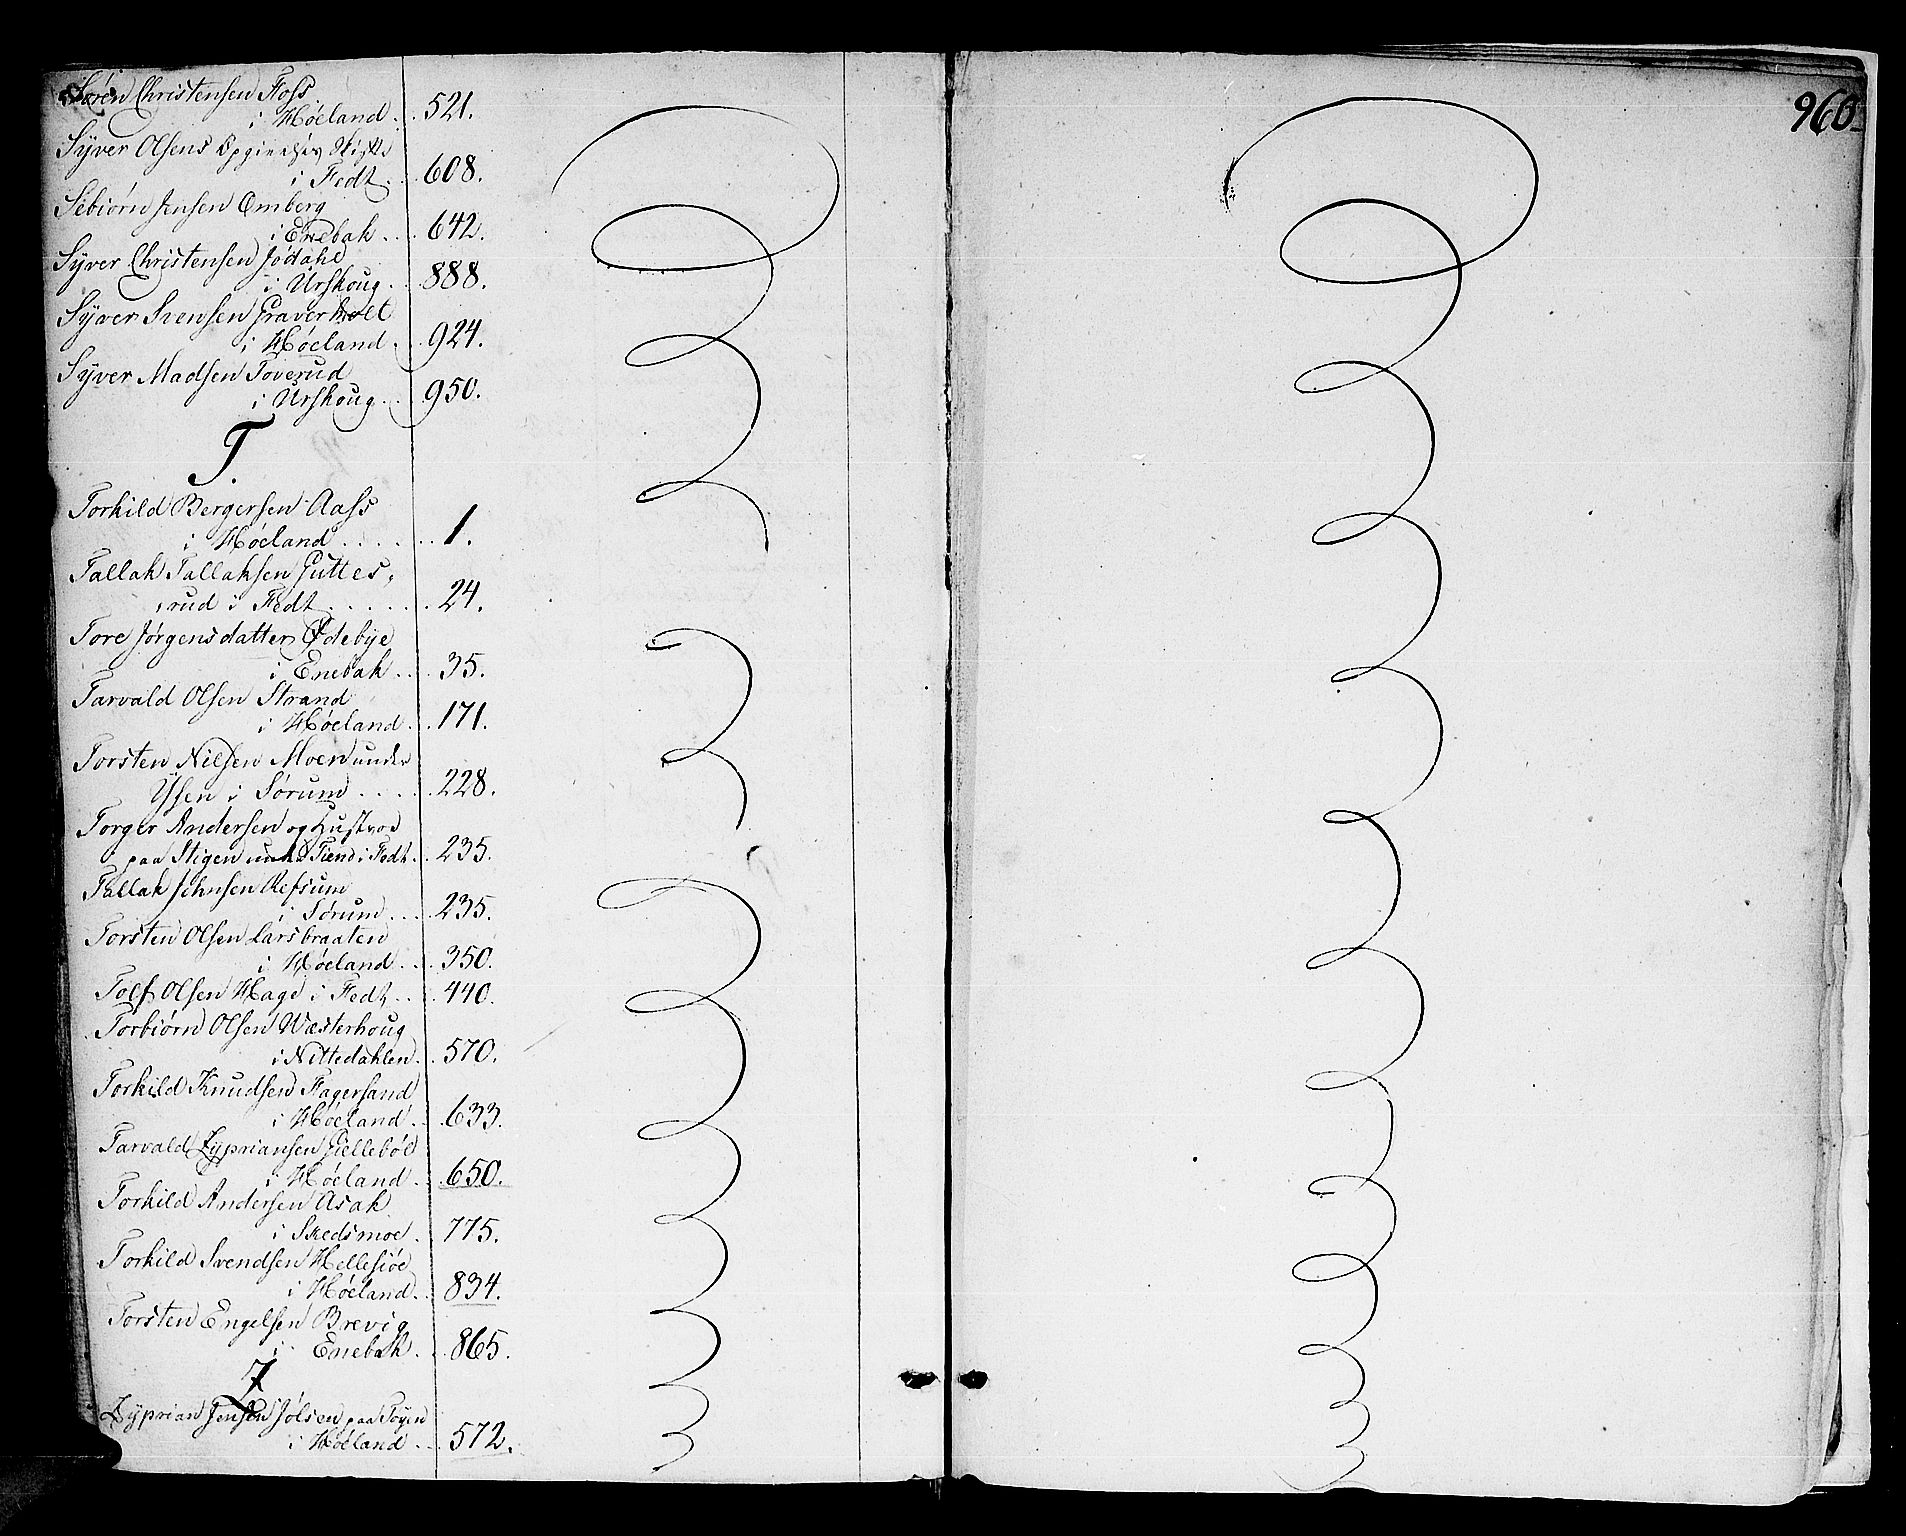 Søren Christensen Foss
i Høeland . . 521.
Syver Olsens Opgivelses Skifte
i Fedt . . 608.
Sebiørn Jensen Omberg
i Enebak . . . 642.
Syver Christensen Jødahl
i Urskoug . . 888.
Syver Svensen Graverholt
i Høeland . . 924.
Syver Madsen Toverud
i Urskoug . . 950.
T.
Torkild Bergersen Aass
i Høeland . . . . . . 1.
Tallak Tallaksen Guttes,
,rud i Fedt . . . . . . 24.
Tore Jørgensdatter Ødebye
i Enebak . . . 35.
Tarvald Olsen Strand
i Høeland . . 171.
Torsten Nilsen Moen under
Ysen i Sørum . . . . . 228.
Torger Andersen og Hustroe
paa Stigen under Tiend i Fedt . . 235.
Tallak Johnsen Refsum
i Sørum . . . 235.
Torsten Olsen Larsbraaten
i Høeland . . . 350.
Tolf Olsen Hage i Fedt . . . 440.
Torbiørn Olsen Wæsterhoug
i Nittedahlen . . 570.
Torkild Knudsen Fagersand
i Høeland . . . 633.
Tarvald Zypriansen Gielleból
i Høeland . . . 650.
Torkild Andersen Asak
i Skedsmoe . . 775.
Torkild Svendsen Hellesiøe
i Høeland . . 834.
Torsten Engelsen Brevig
i Enebak . . 865.
Z
Zyprian Jensen Jølsen paa Toyen
i Høeland . . . 572.
960